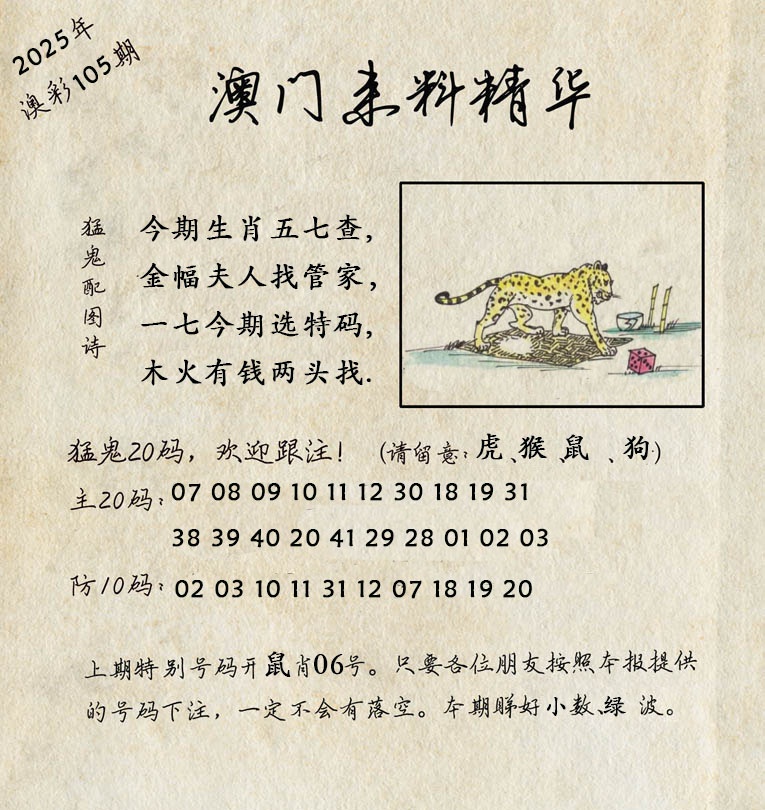 2025年
澳彩105期
澳门来料精华
猛鬼配图诗
今期生肖五七查，
金幅夫人找管家，
一七今期选特码，
木火有钱两头找.
猛鬼20码，欢迎跟注！（请留意：虎、猴、鼠、狗）
主20码：07 08 09 10 11 12 30 18 19 31
38 39 40 20 41 29 28 01 02 03
防10码：02 03 10 11 31 12 07 18 19 20
上期特别号码开鼠肖06号。只要各位朋友按照本报提供
的号码下注，一定不会有落空。本期睇好小数、绿 波。